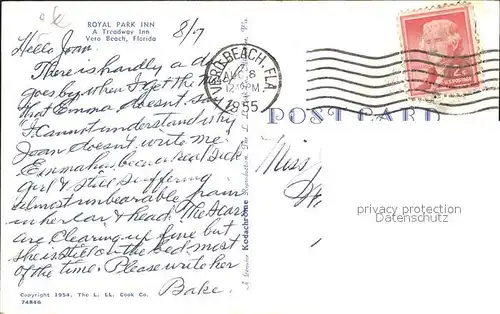 ROYAL PARK INN
A Treadway Inn
Vero Beach, Florida
8/7
Hello Joan.
There is hardly a da
goes by when I get the m
that Emma doesn't say
I cannot understand why
Joan doesn't write me.
Emma has been a real sick
girl & still suffering
almost unbearable pain
in her ear & head. The scars
are clearing up fine but
she is still on the bed most
of the time. Please write her
Bake.
Copyright 1954, The L. LL. Cook Co.
74846
VERO BEACH, FLA.
AUG 8
12 PM
1955
2¢
U.S. POSTAGE
POST CARD
Kodachrome Reproduction
Miss
privacy protection
Datenschutz